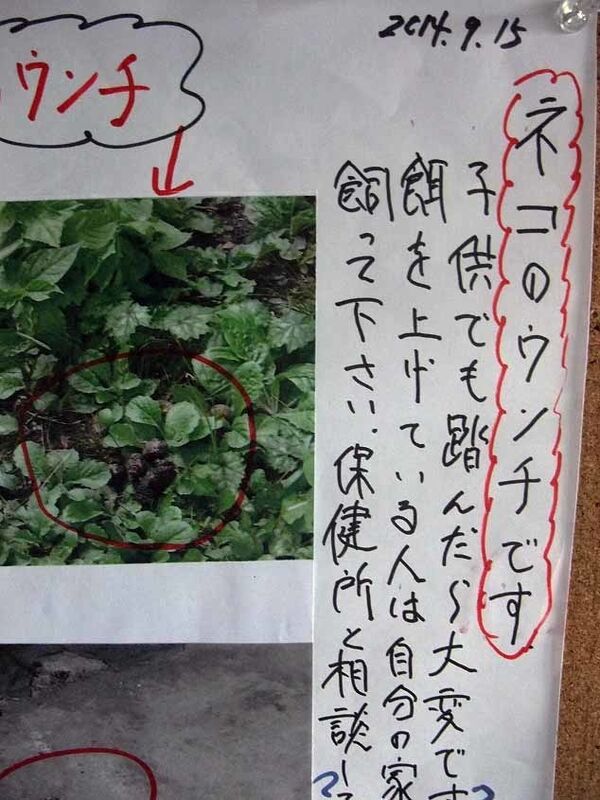 2014.9.15
ネコのウンチです
子供でも踏んだら大変です
餌を上げている人は自分の家
飼って下さい.保健所と相談して
ウンチ